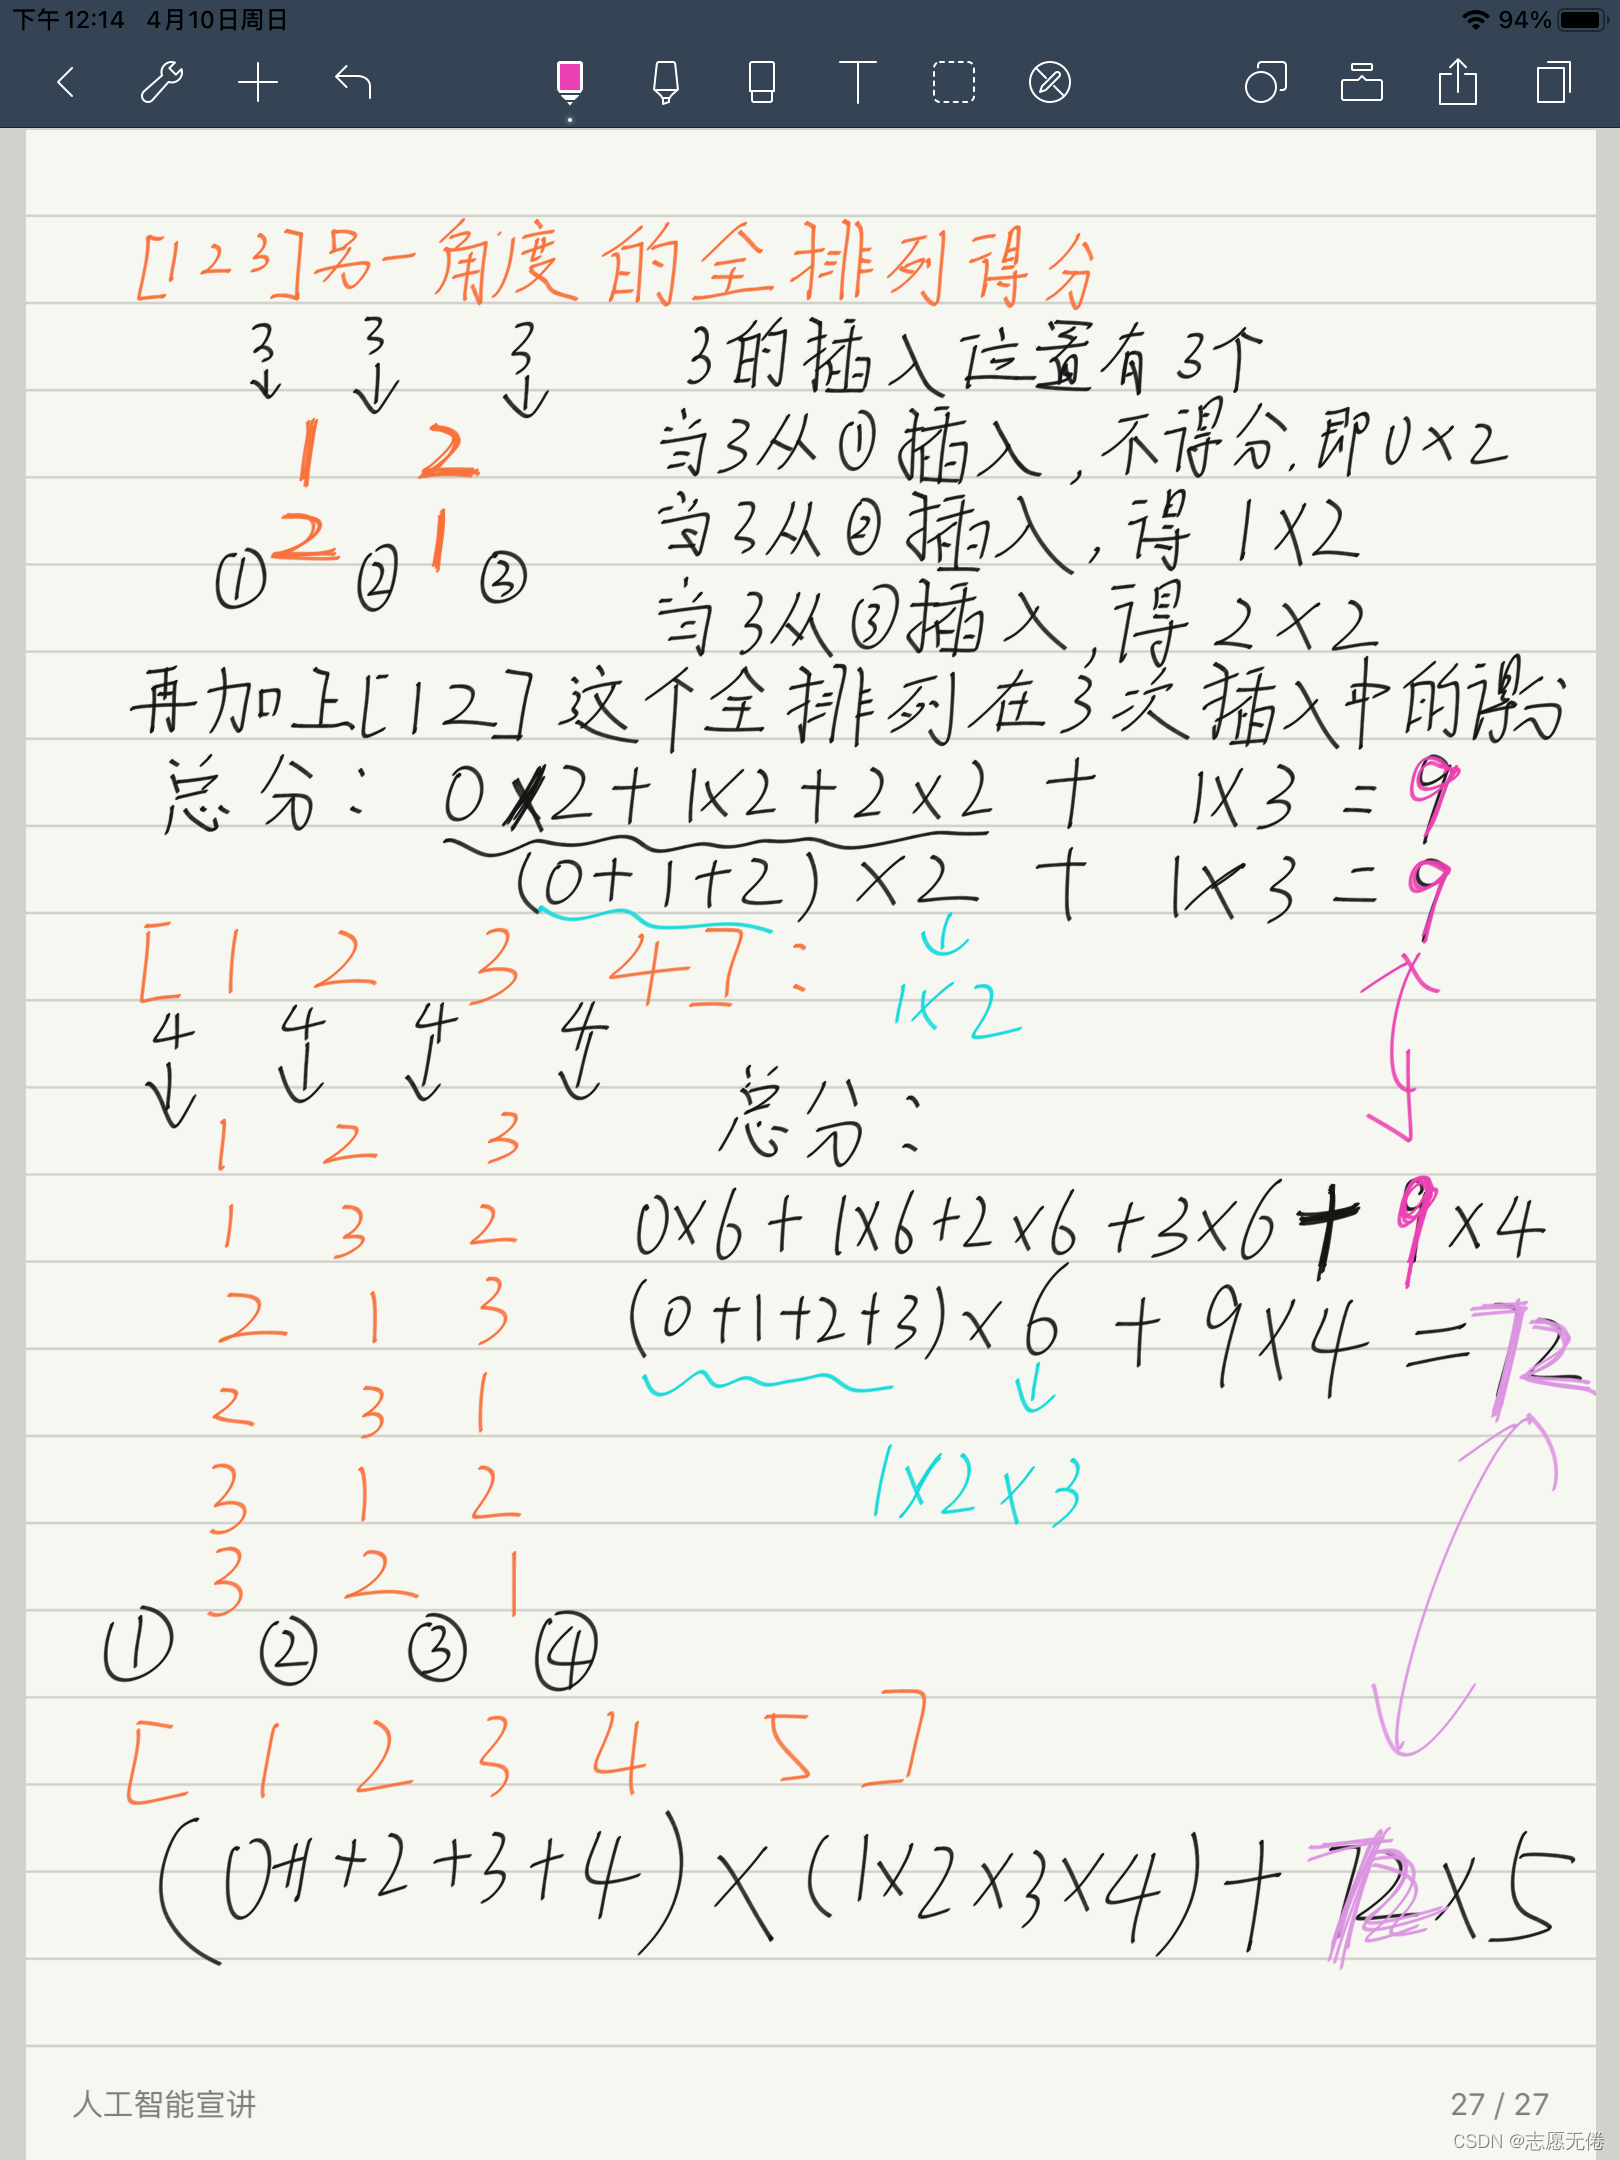 下午12:14 4月10日周日 94%
[1 2 3]另一角度的全排列得分
3 3 3 3的插入位置有3个
1 2 当3从①插入,不得分.即0×2
2 1 当3从②插入,得 1×2
① ② ③ 当3从③插入,得 2×2
再加上[1 2]这个全排列在3次插入中的得分
总分: 0×2+1×2+2×2 + 1×3=9
(0+1+2)×2 + 1×3=9
[1 2 3 4]: 1×2
4 4 4 4
1 2 3 总分:
1 3 2 0×6+1×6+2×6+3×6+9×4
2 1 3 (0+1+2+3)×6+9×4=72
2 3 1
3 1 2 1×2×3
3 2 1
① ② ③ ④
[1 2 3 4 5]
(0+1+2+3+4)×(1×2×3×4)+72×5
人工智能宣讲 27 / 27
CSDN @志愿无倦